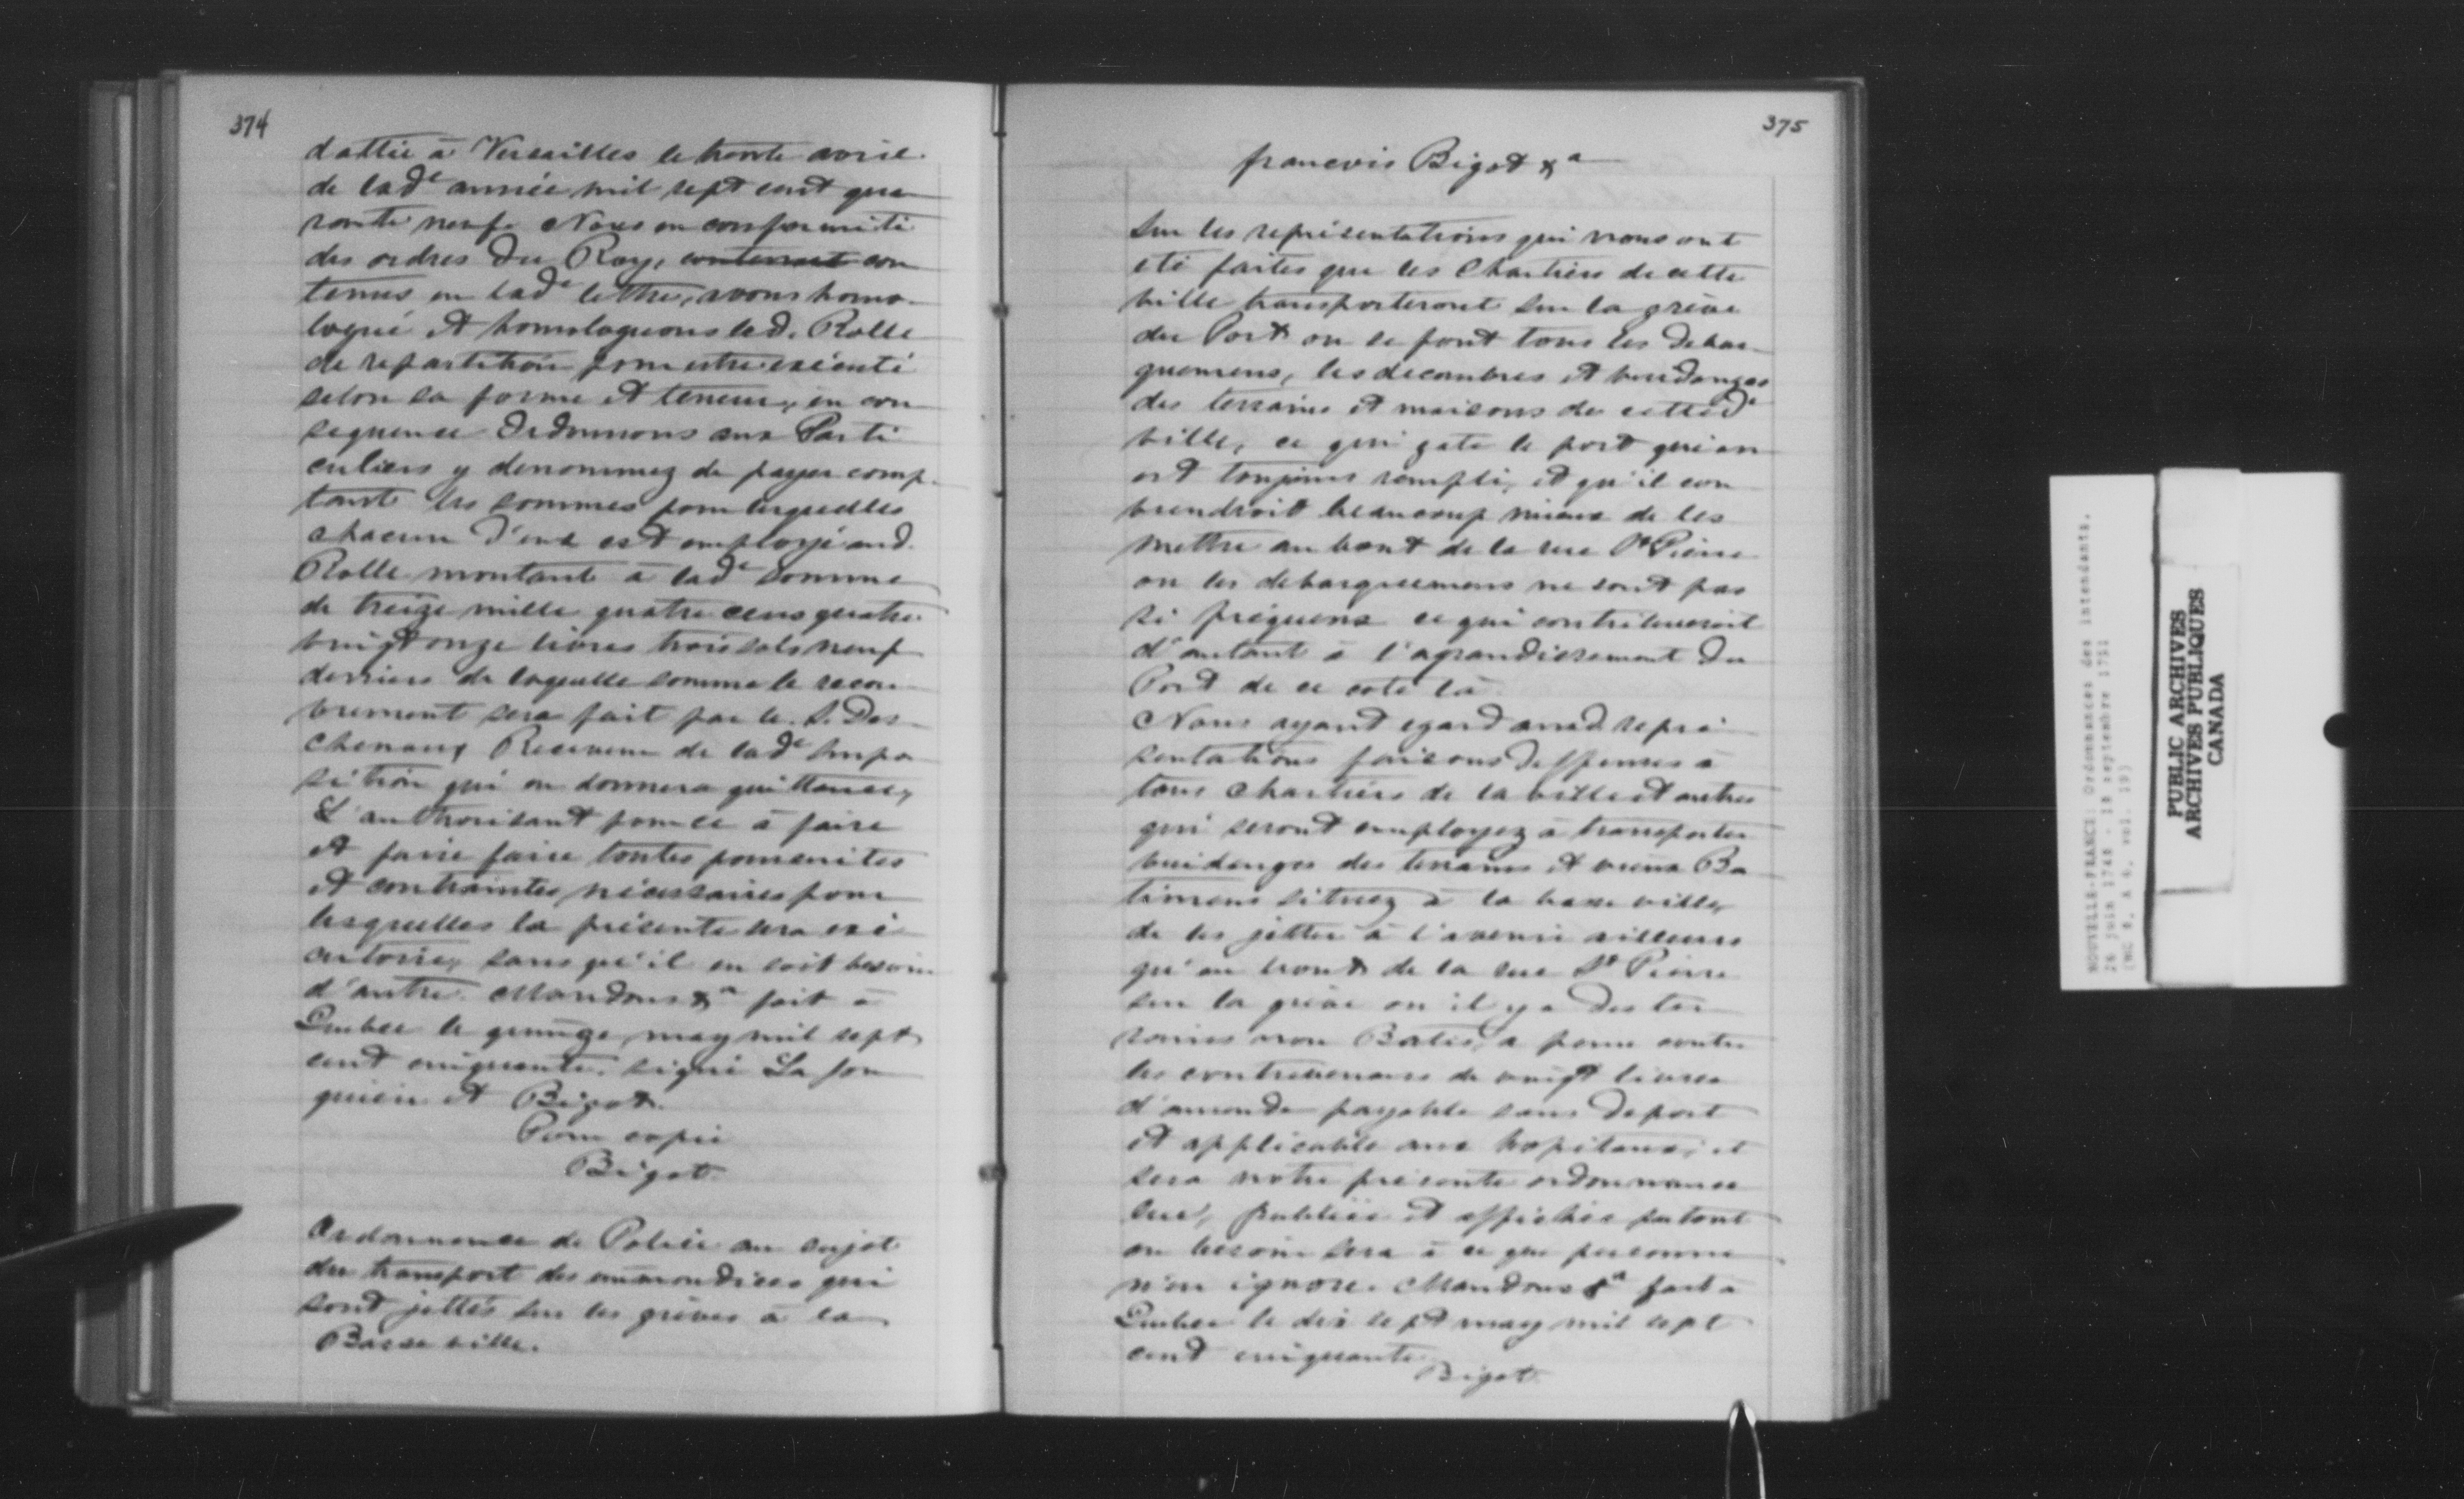 374
dattée à Versailles le trente avril
de lad^e année mil sept cent qua
rante neuf. Nous en conformité
des ordres du Roy, contenant con
tenus en lad^e lettre, avons homo
logué et homologuons led. Rolle
de repartition pour estre exécuté
selon sa forme et teneur, en con
sequence Ordonnons aux Parti
culiers y denommez de payer comp
tant les sommes pour lesquelles
chacun d'eux est employé aud.
Rolle montant à lad^e somme
de treize mille quatre cens quatre
vingt onze livres trois sols neuf
derniers de laquelle somme le recou
vrement sera fait par le S. Des
chenaux Receveur de lad^e Impo
sition qui en donnera quittance,
L'authorisant pour ce à faire
et faire faire toutes poursuites
et contraintes nécessaires pour
lesquelles la présente sera exé
cutoire, sans qu'il en soit besoin
d'autre. Mandons &^a fait à
Quebec le quinze may mil sept
cent cinquante. signé La Jon
quiere et Bigot.
Pour copie
Bigot
Ordonnance de Police au sujet
du transport des immondices qui
sont jettés sur les grèves à la
Basse ville.
375
francois Bigot &^a
Sur les représentations qui nous ont
eté faites que les Chartiers de cette
ville transporteront sur la grève
du Port ou se font tous les debar
quemens, les decombres et vuidanges
des terrains et maisons de cetted^e
ville, ce qui gate le port qui en
est toujours rempli, et qu'il con
viendroit beaucoup mieux de les
mettre au bout de la rue S^t Pierre
ou les debarquemens ne sont pas
si frequens ce qui contribueroit
d'autant à l'agrandissement du
Port de ce coté là
Nous ayant egard auxd. repré
sentations faisons deffenses à
tous Chartiers de la ville et autres
qui seront employez à transporter
vuidanges des terrains et vieux Ba
timens situez à la basse ville,
de les jetter à l'avenir ailleurs
qu'au bout de la rue S^t Pierre
sur la grève ou il y a des ter
rains non Batis, a peine contre
les contrevenans de vingt livres
d'amende payable sans deport
et applicable aux hopitaux, et
sera notre présente ordonnance
lue, publiée et affichée partout
ou besoin sera à ce que personne
n'en ignore. Mandons &^a fait à
Quebec le dix sept may mil sept
cent cinquante
Bigot
NOUVELLE-FRANCE: Ordonnances des intendants.
26 juin 1748 - 18 septembre 1751
PUBLIC ARCHIVES
ARCHIVES PUBLIQUES
CANADA